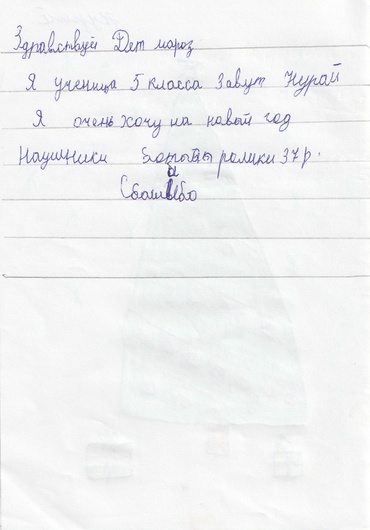 Здравствуй Дет мороз
Я ученица 5 класса Завут Нурай
Я очень хочу на новый год
Наушники ролики 37р.